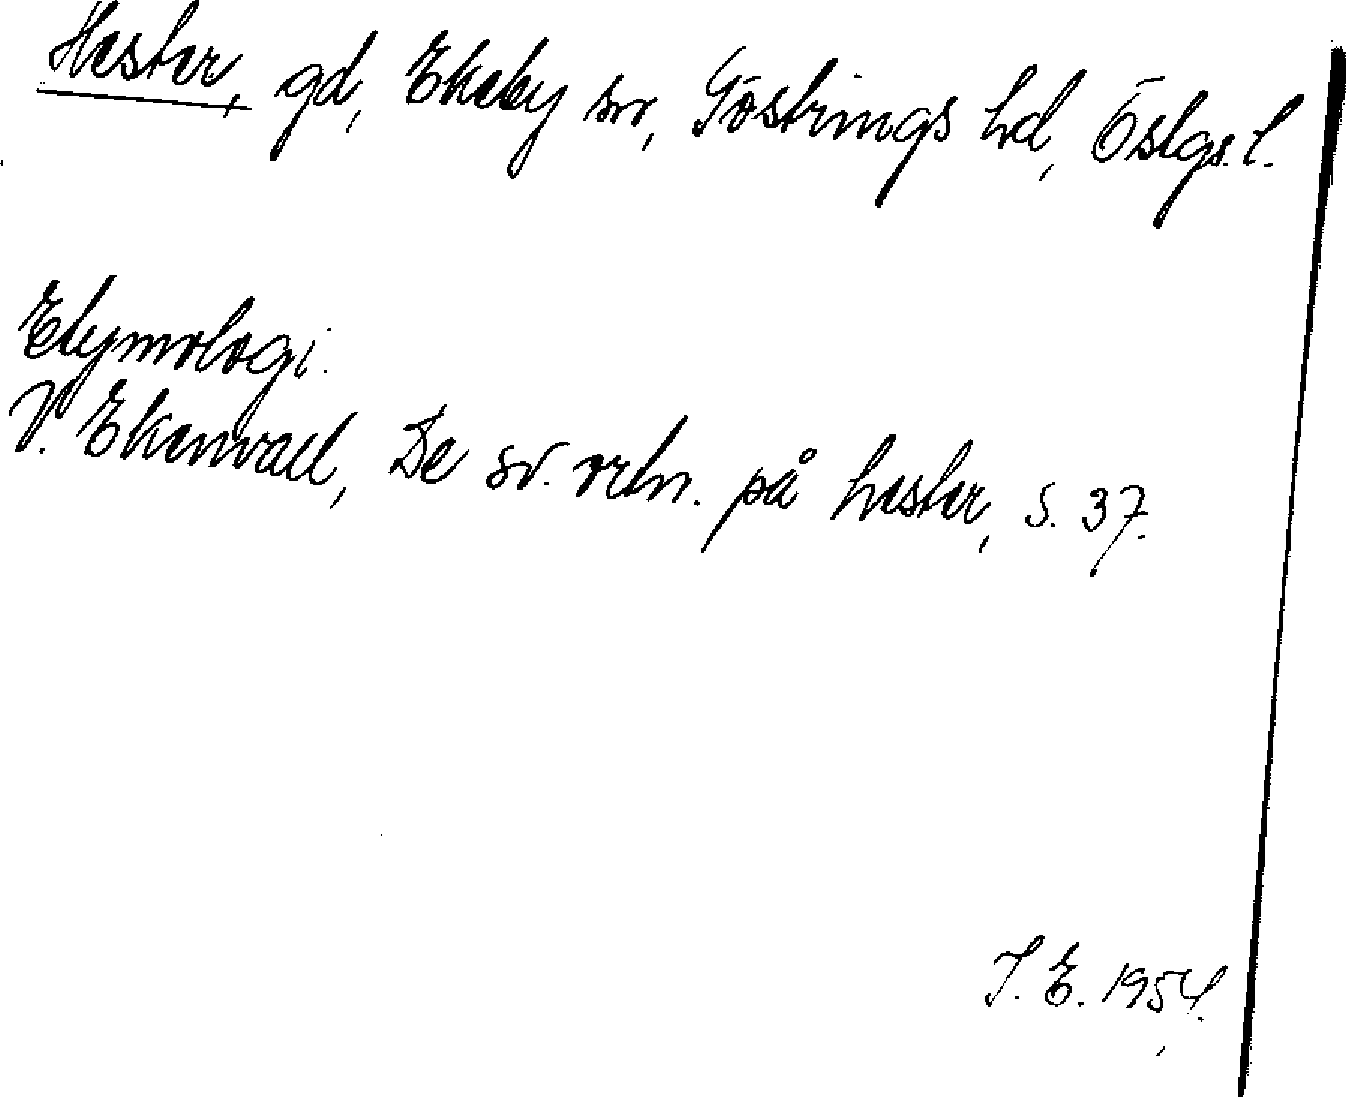 Hester, gd, Ekeby sn, Göstrings hd, Östgs. l.
Etymologi.
V. Ekenvall, De sv. ortn. på hester, s. 37.
I. E. 1954.